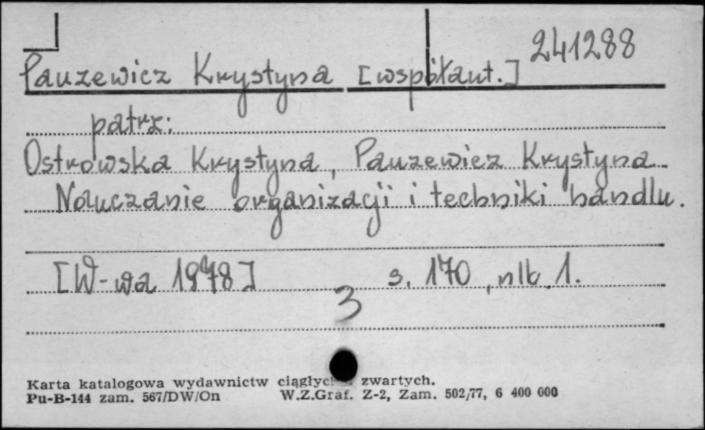 241288
Pauzewicz Krystyna [współaut.]
patrz:
Ostrowska Krystyna, Pauzewicz Krystyna
Nauczanie organizacji i techniki handlu.
[W-wa 1978] s. 170, nlb. 1.
3
Karta katalogowa wydawnictw ciągłych zwartych.
Pu-B-144 zam. 567/DW/On W.Z.Graf. Z-2, Zam. 502/77, 6 400 000